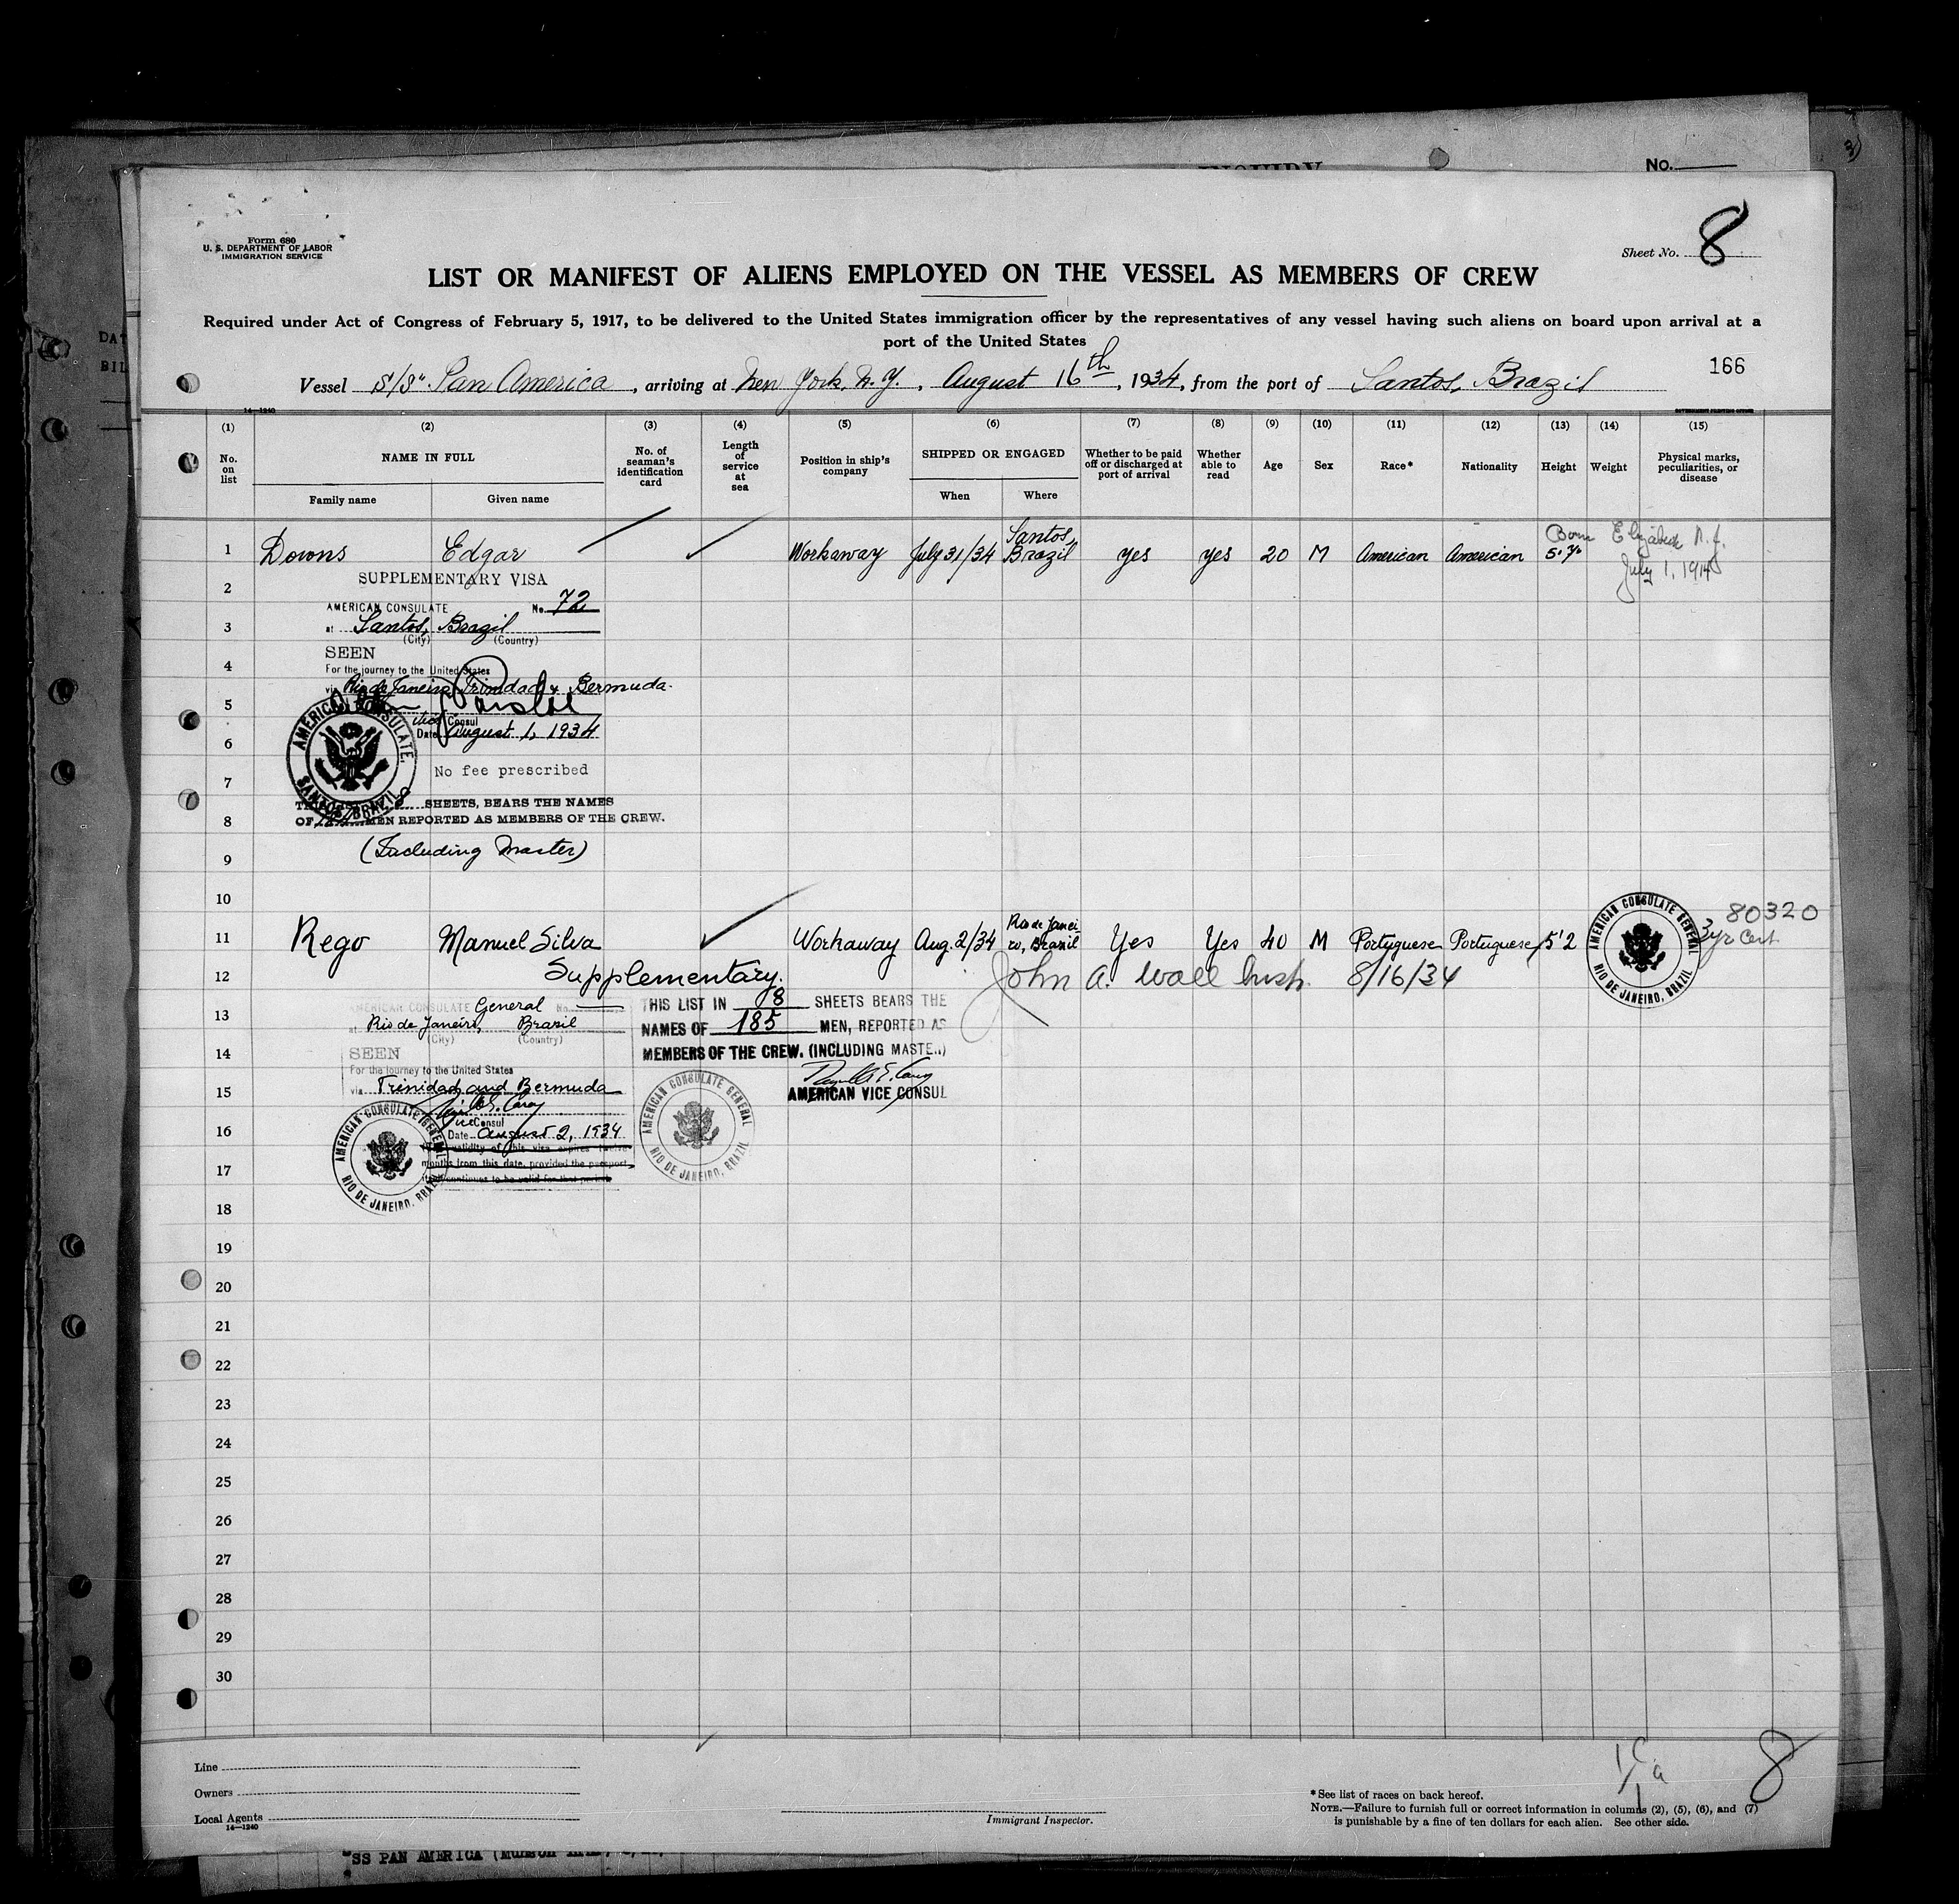 INQUIRY
No.
3)
DAT
BIL
Form 680
U. S. DEPARTMENT OF LABOR
IMMIGRATION SERVICE
Sheet No. 8
LIST OR MANIFEST OF ALIENS EMPLOYED ON THE VESSEL AS MEMBERS OF CREW
Required under Act of Congress of February 5, 1917, to be delivered to the United States immigration officer by the representatives of any vessel having such aliens on board upon arrival at a
port of the United States
166
Vessel S/S" Pan America, arriving at New York, N.Y., August 16th, 1934, from the port of Santos, Brazil
14—1240
GOVERNMENT PRINTING OFFICE
(1) (2) (3) (4) (5) (6) (7) (8) (9) (10) (11) (12) (13) (14) (15)
No. on list
NAME IN FULL
Family name Given name
No. of seaman's identification card
Length of service at sea
Position in ship's company
SHIPPED OR ENGAGED
When Where
Whether to be paid off or discharged at port of arrival
Whether able to read
Age
Sex
Race*
Nationality
Height
Weight
Physical marks, peculiarities, or disease
1 Downs Edgar Workaway July 31/34 Santos, Brazil yes yes 20 M American American 5' Born Elizabeth N.J.
July 1, 1914
2
SUPPLEMENTARY VISA
AMERICAN CONSULATE No. 72
3
at Santos, Brazil
(City) (Country)
4
SEEN
For the journey to the United States
via Rio de Janeiro, Trinidad & Bermuda.
5
Vice Consul
Date August 1, 1934
6
AMERICAN CONSULATE.
SANTOS, BRAZIL
7
No fee prescribed
8
SHEETS, BEARS THE NAMES
OF MEN REPORTED AS MEMBERS OF THE CREW.
9
(Including Master)
10
11 Rego Manuel Silva Workaway Aug. 2/34 Rio de Janeiro, Brazil Yes Yes 40 M Portuguese Portuguese 5'2
AMERICAN CONSULATE GENERAL
RIO DE JANEIRO, BRAZIL
80320
3 yr Cert
12
Supplementary.
John A. Wall Insp. 8/16/34
13
AMERICAN CONSULATE General No.
at Rio de Janeiro, Brazil
(City) (Country)
THIS LIST IN 8 SHEETS BEARS THE
NAMES OF 185 MEN, REPORTED AS
14
MEMBERS OF THE CREW. (INCLUDING MASTER)
SEEN
For the journey to the United States
15
via Trinidad and Bermuda
AMERICAN VICE CONSUL
16
Vice Consul
Date August 2, 1934
validity of this visa expires twelve
17
months from this date, provided the passport
continues to be valid for that period
AMERICAN CONSULATE GENERAL
RIO DE JANEIRO, BRAZIL
AMERICAN CONSULATE GENERAL
RIO DE JANEIRO, BRAZIL
18
19
20
21
22
23
24
25
26
27
28
29
30
Line
Owners
Local Agents
14—1240
Immigrant Inspector.
8
*See list of races on back hereof.
NOTE.—Failure to furnish full or correct information in columns (2), (5), (6), and (7)
is punishable by a fine of ten dollars for each alien. See other side.
"SS PAN AMERICA